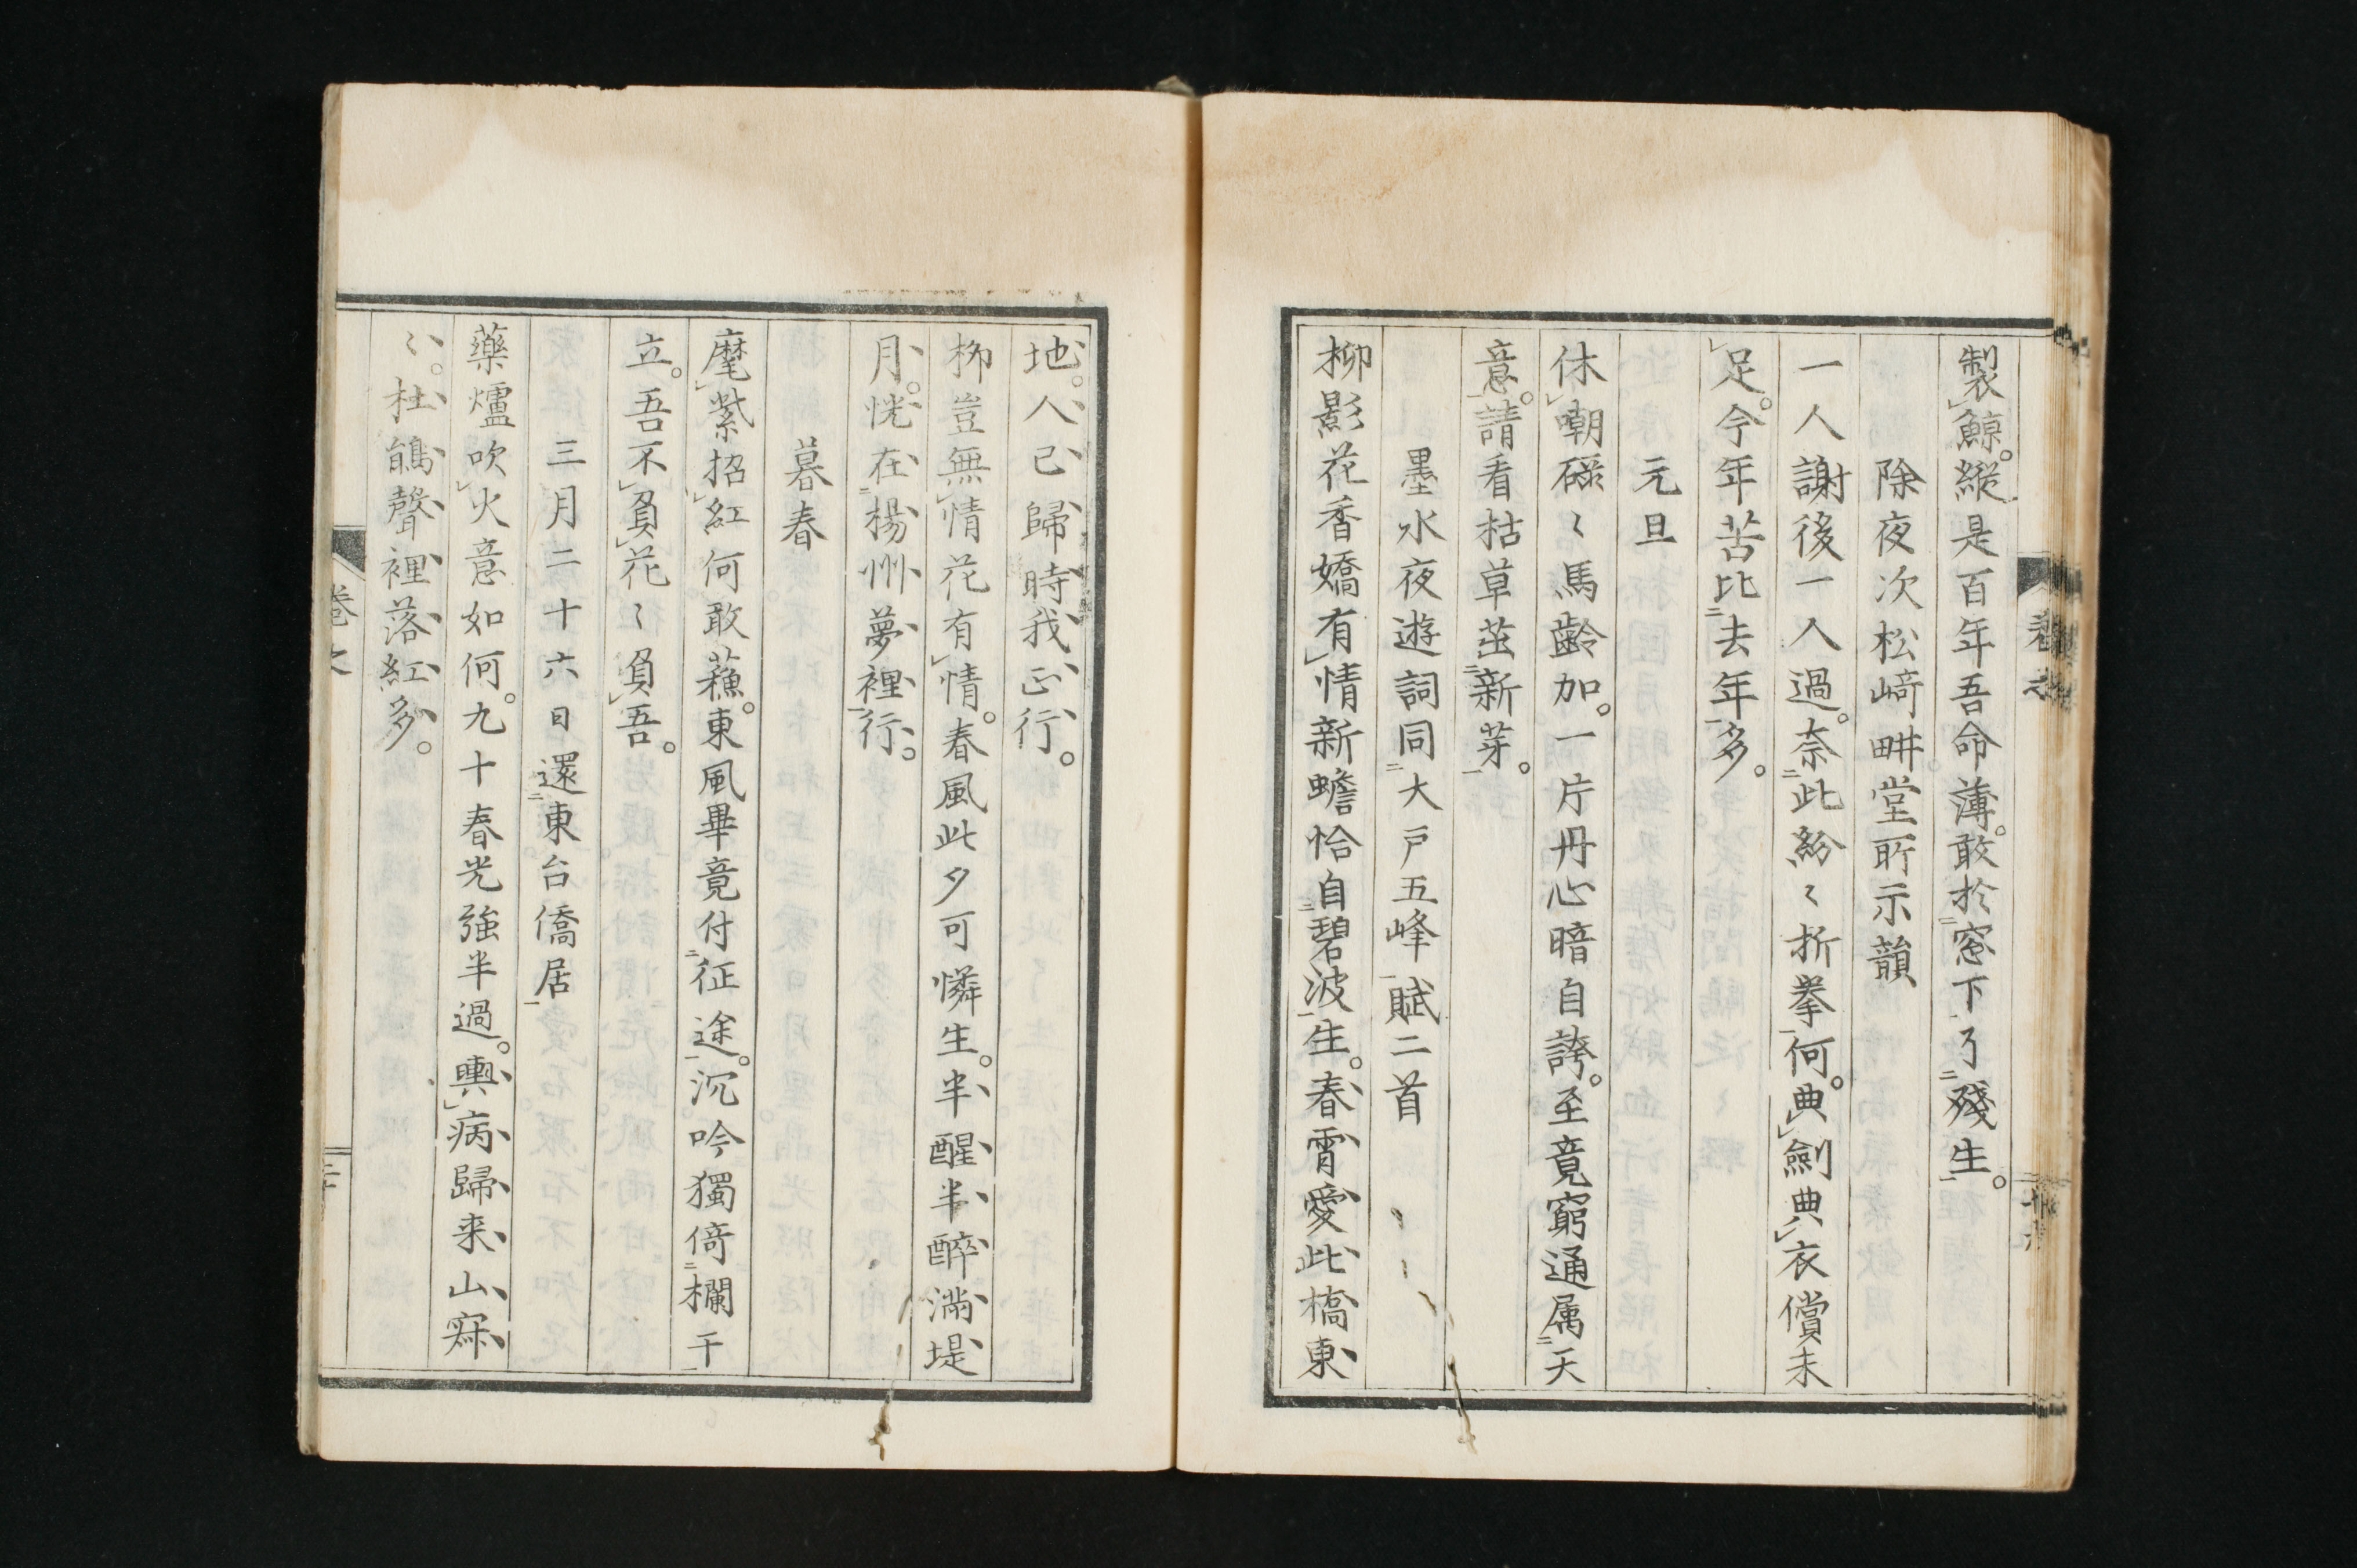 製鯨。縦是百年吾命薄。敢於窓下了殘生。
除夜次松﨑畊堂所示韻
一人謝後一人過。奈此紛〻折拳何。典劍典衣償未
足。今年苦比去年多。
元旦
休嘲碌〻馬齡加。一片丹心暗自誇。至竟窮通属天
意。請看枯草茁新芽。
墨水夜遊詞同大戸五峰賦二首
柳影花香嬌有情新蟾恰自碧波生。春宵愛此橋東
地。人已歸時我正行。
柳豈無情花有情。春風此夕可憐生。半醒半醉満堤
月。恍在揚州夢裡行。
暮春
麾紫招紅何敢蘓。東風畢竟付征途。沉吟獨倚欄干
立。吾不負花〻負吾。
三月二十六日還東台僑居
藥爐吹火意如何。九十春光強半過。輿病歸来山寂
〻。杜鵑聲裡落紅多。
卷之
二十